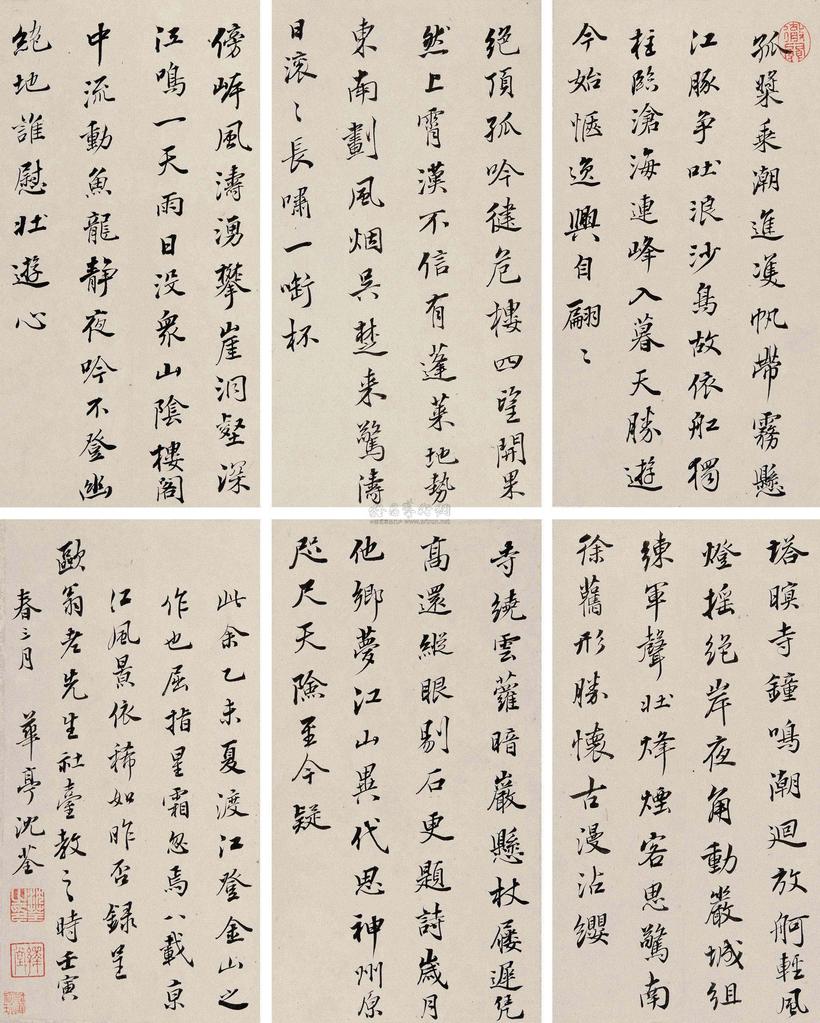 孤槳乘潮進漢帆帶霧懸
江豚争吐浪沙鳥故依舡獨
柱臨滄海連峰入暮天勝遊
今始愜逸興自翩〻
絕頂孤吟健危樓四望開果
然上霄漢不信有蓬萊地勢
東南劃風烟吳楚來驚濤
日滚〻長嘯一啣杯
傍岼風濤湧攀崖洞壑深
江鳴一天雨日没衆山陰樓閣
中流動魚龍静夜吟不登幽
絶地誰慰壯遊心
塔暝寺鐘鳴潮迴放舸輕風
燈摇绝岸夜角動嚴城組
練軍聲壯烽煙客思驚南
徐舊形勝懷古漫沾纓
寺繞雲蘿暗巖懸杖屨遲凭
高還縱眼剔石更題詩嵗月
他鄉夢江山異代思神州原
咫尺天險至今疑
此余乙未夏渡江登金山之
作也屈指星霜忽焉八載京
江風景依稀如昨否録呈
歐翁老先生社臺教之時壬寅
春三月 華亭沈荃